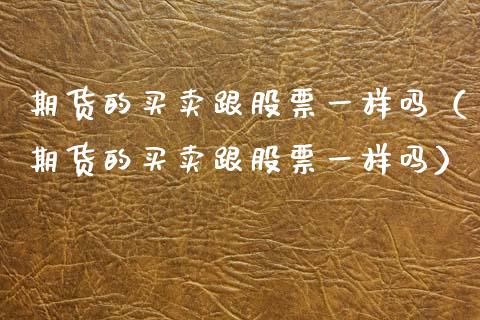 期货的买卖跟股票一样吗（
期货的买卖跟股票一样吗）